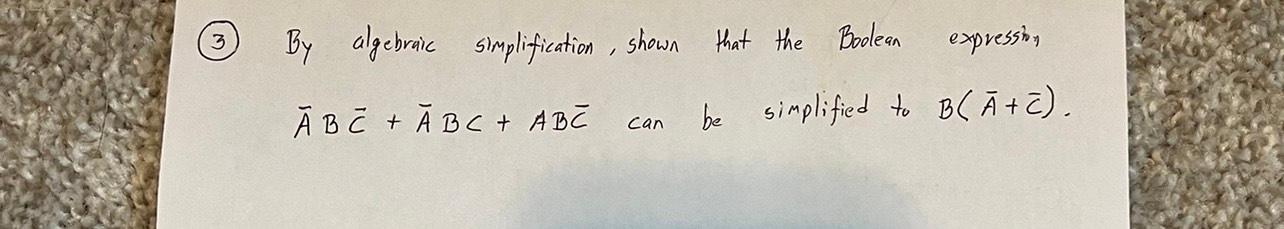 ③ By algebraic simplification, shown that the Boolean expression
A̅ B C̅ + A̅ B C + A B C̅ can be simplified to B( A̅ + C̅ ).